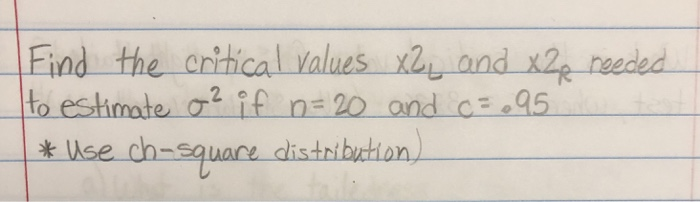 Find the critical values x2L and x2R needed
to estimate σ² if n=20 and c=.95
* Use ch-square distribution)